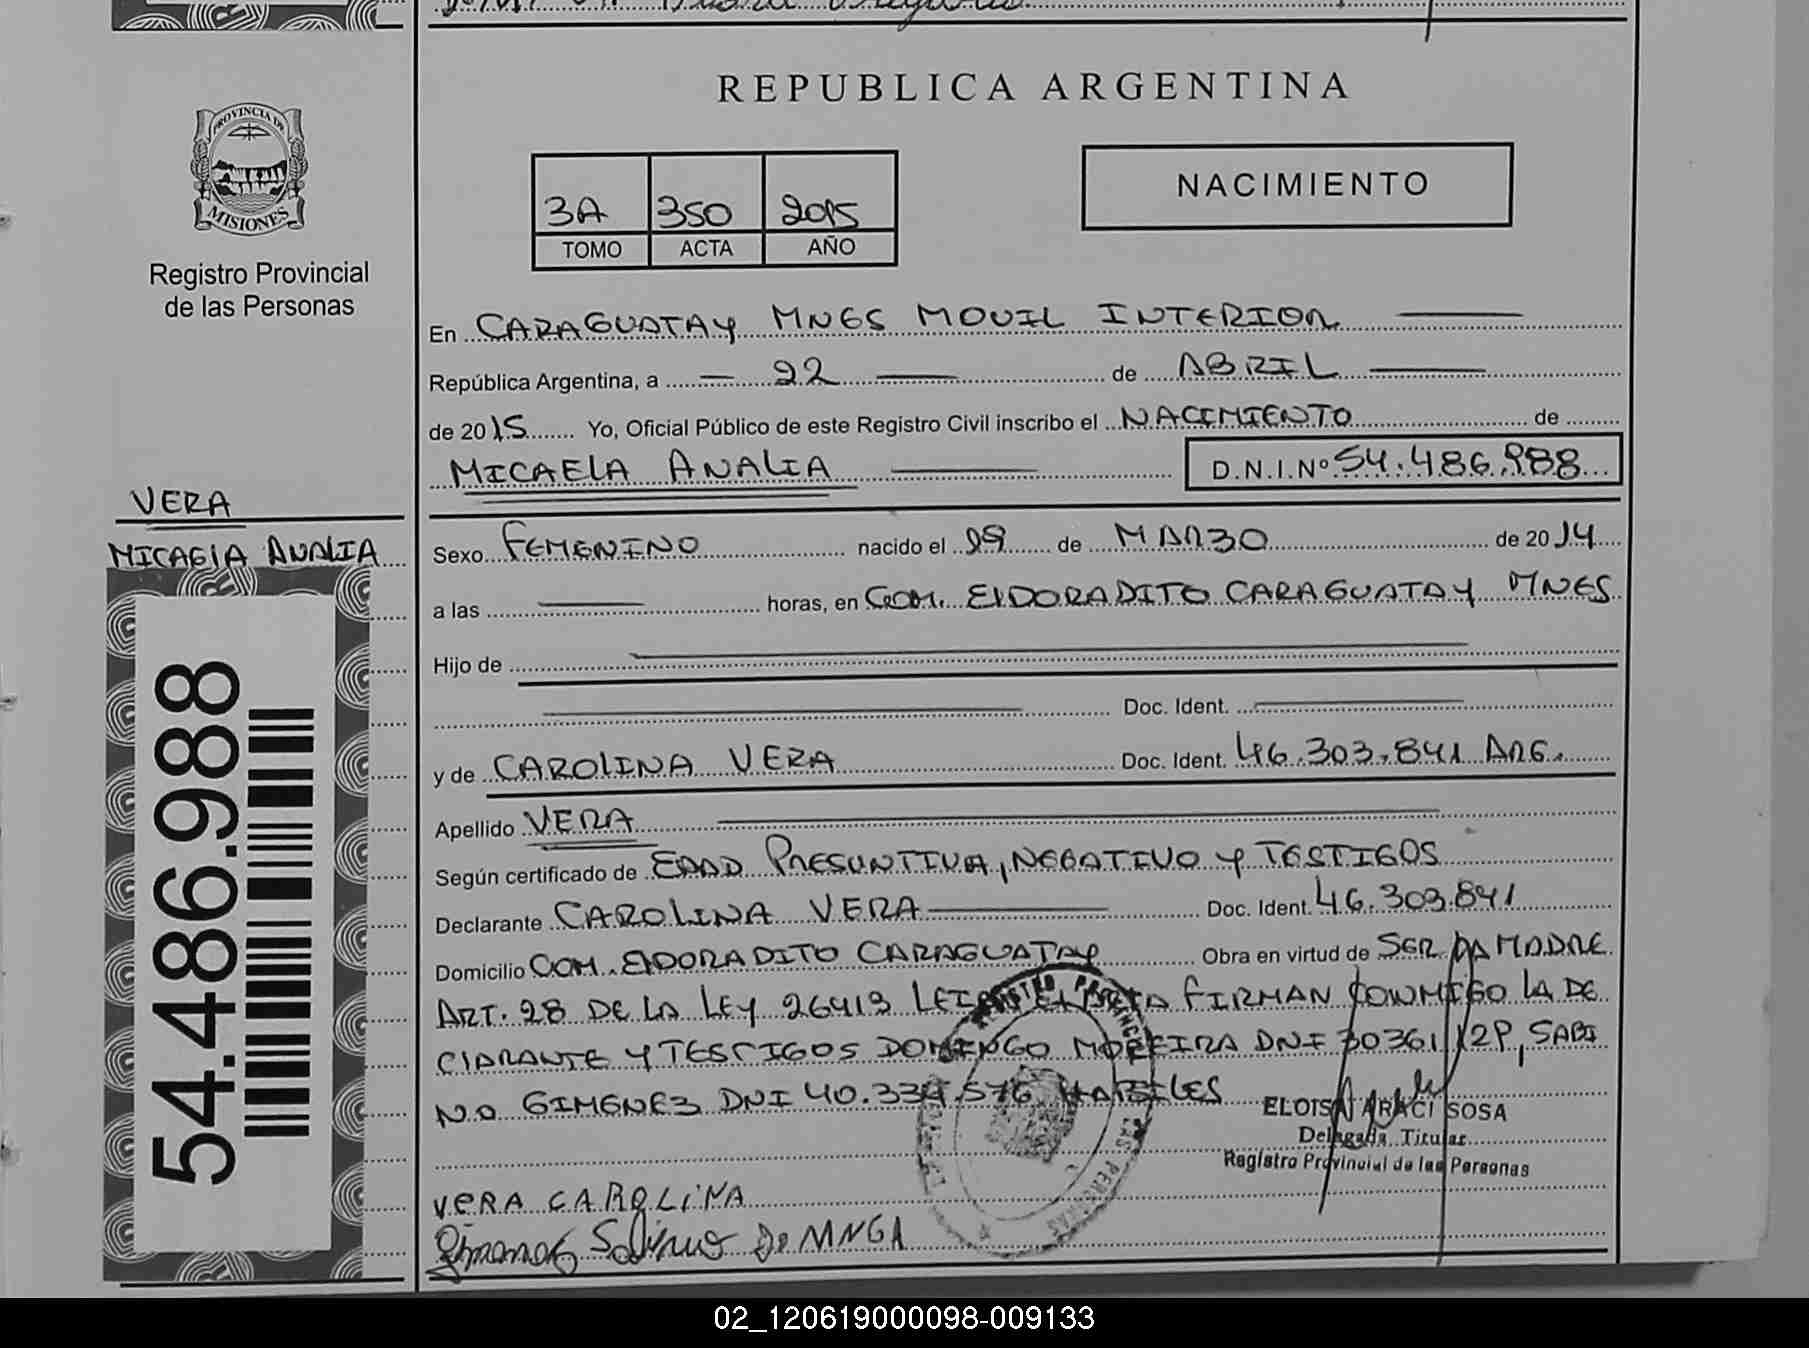 REPUBLICA ARGENTINA
PROVINCIA DE
MISIONES
Registro Provincial
de las Personas
NACIMIENTO
3A 350 2015
TOMO ACTA AÑO
En CARAGUATAY MNES MOVIL INTERIOR
República Argentina, a 22 de ABRIL
de 2015 Yo, Oficial Público de este Registro Civil inscribo el NACIMIENTO de
MICAELA ANALIA D.N.I.Nº 54.486.988
VERA
MICAELA ANALIA
54.486.988
Sexo FEMENINO nacido el de MARZO de 2014
a las horas, en COM. ELDORADITO CARAGUATAY MNES
Hijo de
Doc. Ident.
y de CAROLINA VERA Doc. Ident. 46.303.841 ARG.
Apellido VERA
Según certificado de EDAD PRESUNTIVA, NEGATIVO Y TESTIGOS
Declarante CAROLINA VERA Doc. Ident. 46.303.841
Domicilio COM. ELDORADITO CARAGUATAY Obra en virtud de SER LA MADRE
ART. 28 DE LA LEY 26413 LEIDA EL ACTA FIRMAN CONMIGO LA DE
CLARANTE Y TESTIGOS DOMINGO MOREIRA DNI SABI
NO GIMENEZ DNI HABILES
ELOISA ARACI SOSA
Delegada Titular
Registro Provincial de las Personas
VERA CAROLINA
DOMNGA
02_120619000098-009133